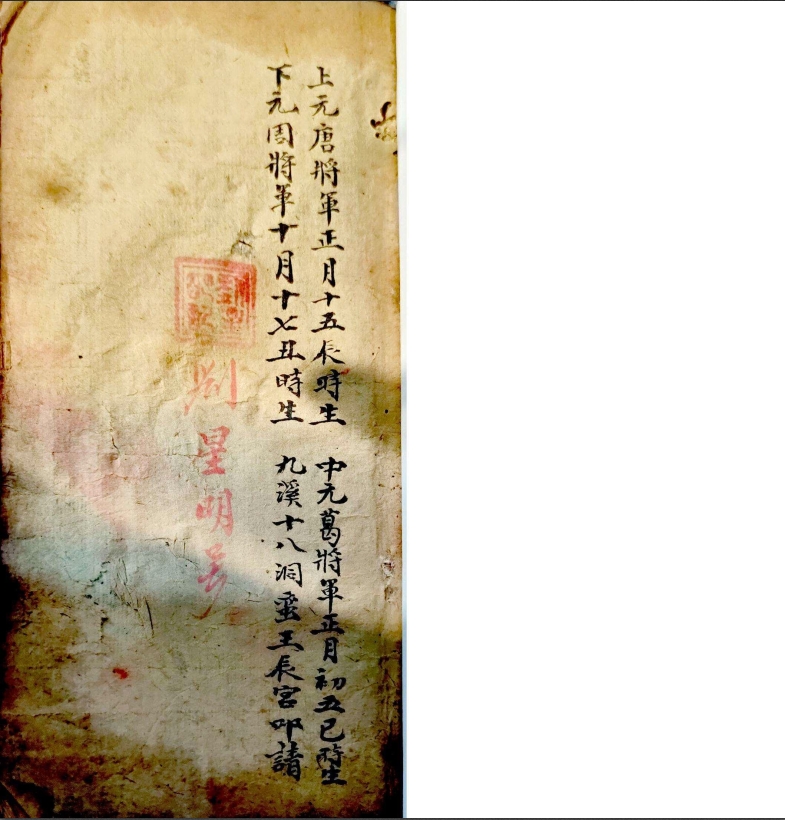 上元唐將軍正月十五辰時生 中元葛將軍正月初五巳時生
下元周將軍十月十七丑時生 九溪十八洞蛮王辰宮叩請
劉星明号